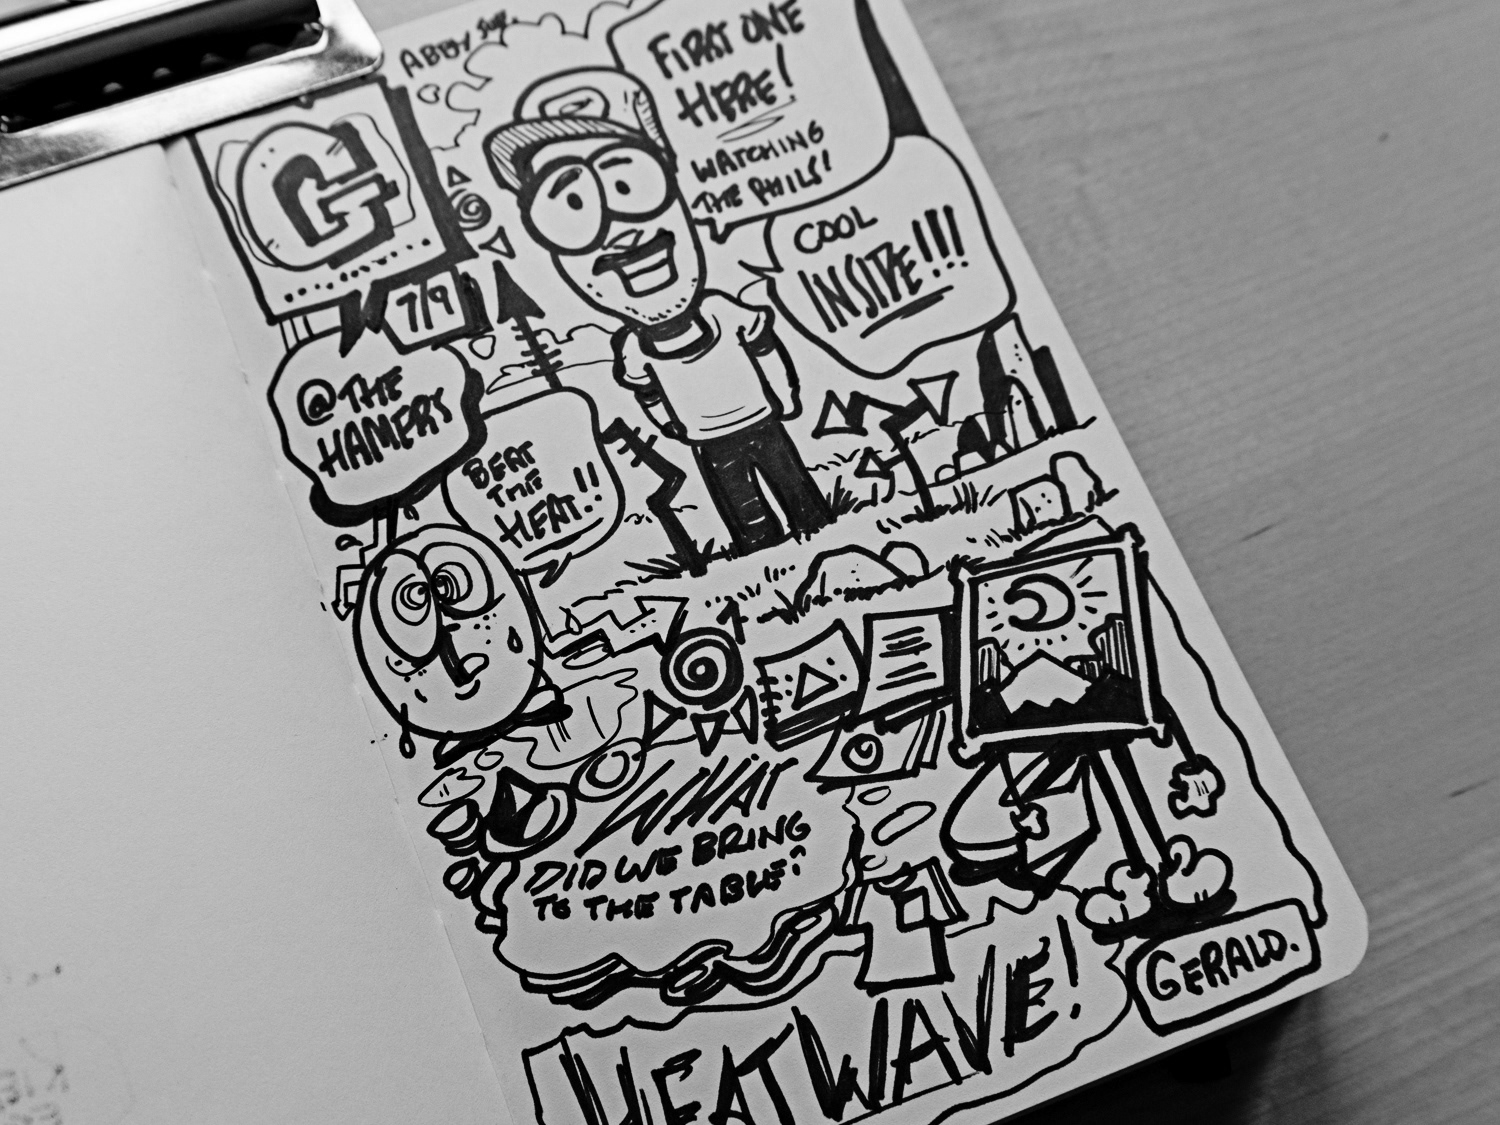 ABBY
FIRST ONE
HERE!
WATCHING
THE PHILS!
COOL
INSIDE!!!
G
7/9
@ THE
HAMERS
BEAT
THE
HEAT!!
WHAT
DID WE BRING
TO THE TABLE?
GERALD.
HEATWAVE!